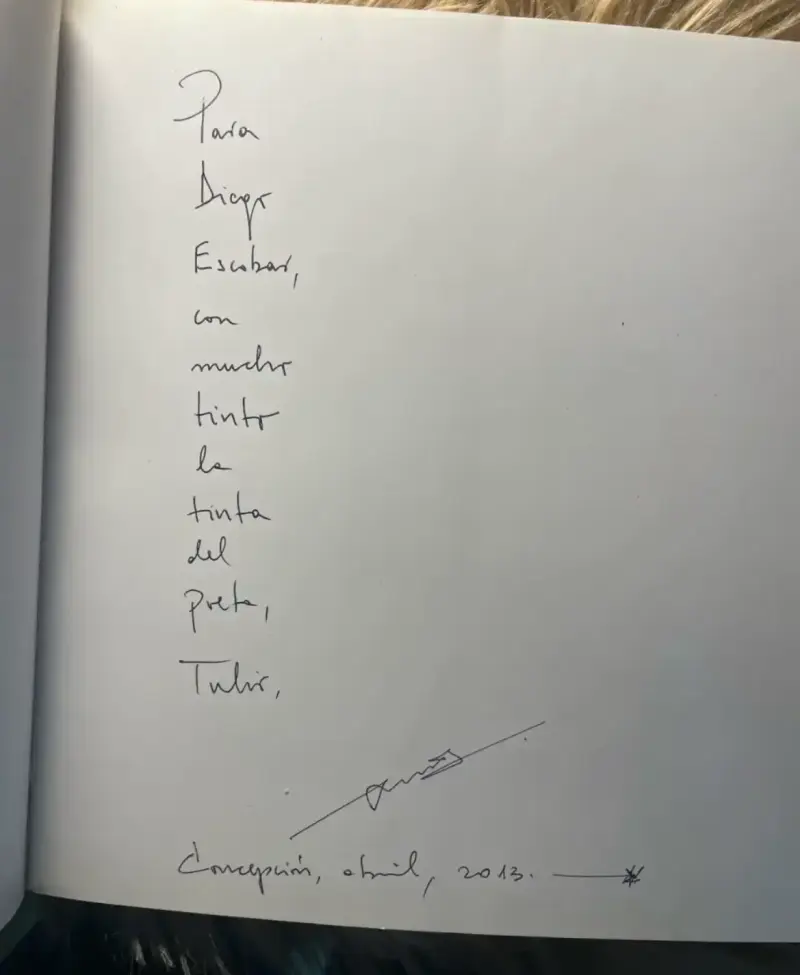 Para
Diego
Escobar,
con
mucho
tinto
la
tinta
del
poeta,
Tulio,
Concepción, abril, 2013.